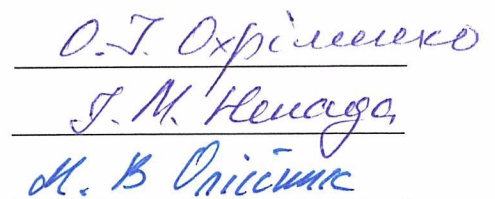 О.І. Охріменко
І.М. Ненада
М. В Олійник